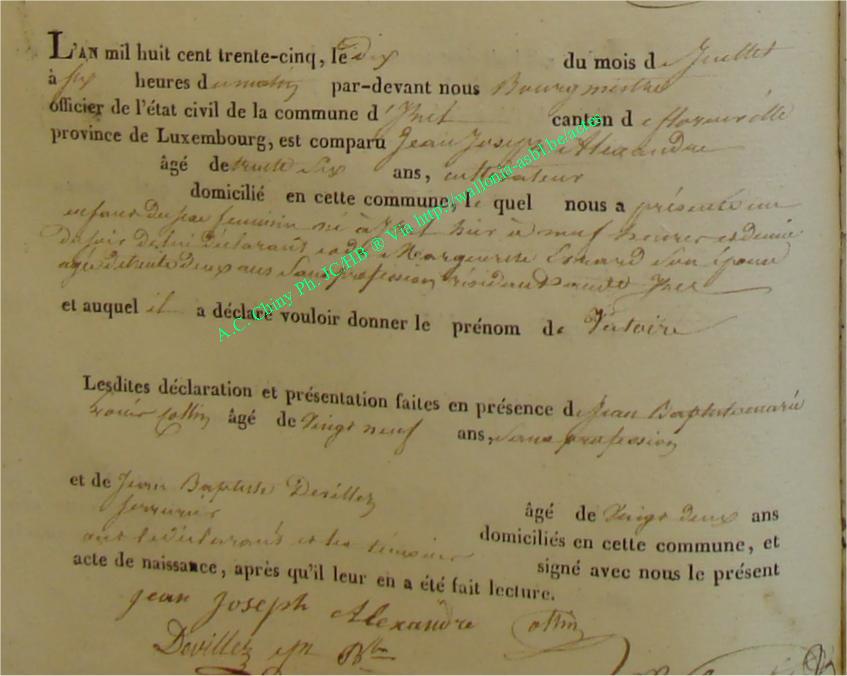 L'AN mil huit cent trente-cinq, le dix du mois de Juillet
à six heures du matin par-devant nous Bourgmestre
officier de l'état civil de la commune d' canton de florenville
province de Luxembourg, est comparu Jean Joseph Alexandre
âgé de trente six ans, cultivateur
domicilié en cette commune, le quel nous a présenté un
enfant du sexe feminin né à hier à neuf heures et demie
du soir de lui déclarant et de Marguerite son épouse
agée de trente deux ans sans profession résidant
et auquel il a déclaré vouloir donner le prénom de Victoire
Lesdites déclaration et présentation faites en présence de Jean Baptiste marie
Louis Collin âgé de vingt neuf ans, sans profession
et de Jean Baptiste Devillez âgé de vingt deux ans
serrurier domiciliés en cette commune, et
ont le déclarant et les témoins signé avec nous le présent
acte de naissance, après qu'il leur en a été fait lecture.
jean joseph Alexandre Collin
Devillez
A.C. Chiny Ph. JC/HB ® Via http://wallonia-asbl.be/actes